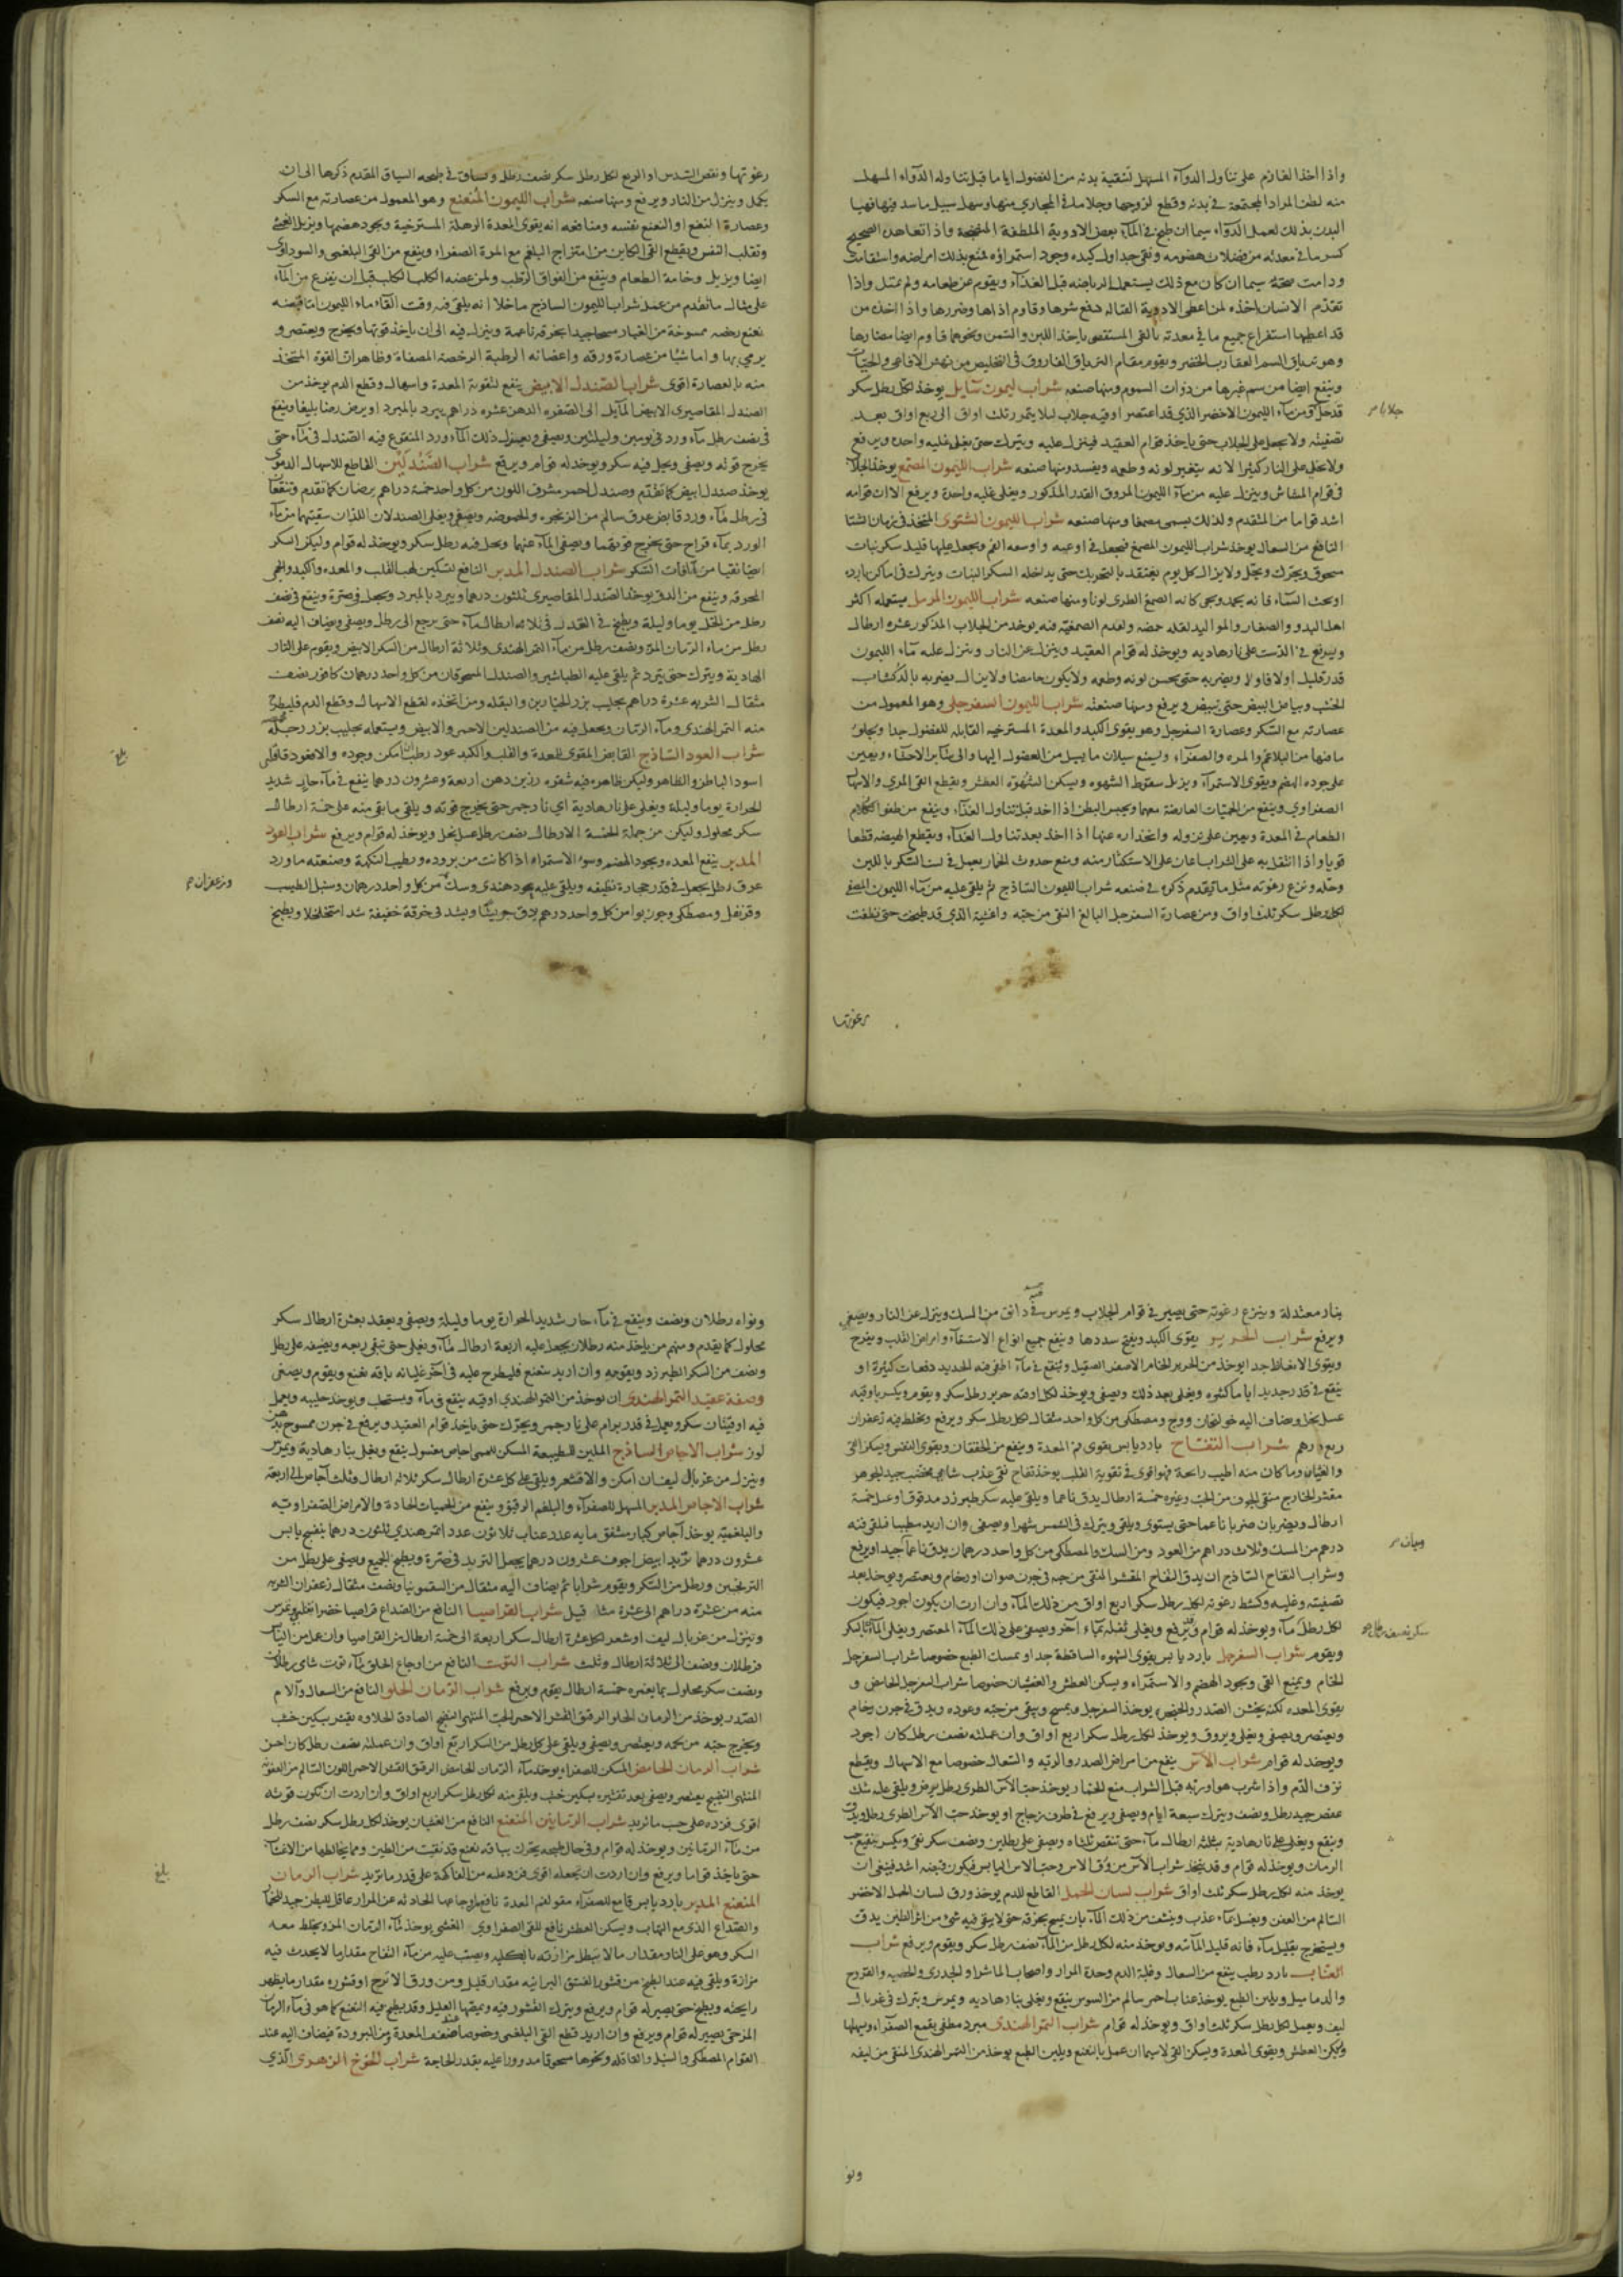 واذا اخذ الغازم على تناول الدوآء المسهل لتنقية بدنه من الفضول اياما قبل تناوله الدوآء المسهل
منه لطف المواد المجتمعة في بدنه وقطع لزوجها وجلا ما في المجاري منها وسهل سبيل ما سد فيها فهيا
البدن بذلك لعمل الدوآء سيما ان طبخ في المآء بعض الادوية الملطفة المنضجة واذا تعاهده الصحيح
كسر ما في معدته من فضلات هضومه ونقى جداول كبده وجود استمراؤه فتنع بذلك امراضه واستقامت
ودامت صحته سيما ان كان مع ذلك يستعمل الرياضه قبل الغذآء ويقوم عن طعامه ولم يمتل واذا
تقدم الانسان اخذه لمن اعطى الادوية القتاله دفع شرها وقاوم اذاها وضررها واذا اخذه من
قد اعطيها استفراغ جميع ما في معدته بالقى المستقصى باخذ اللبن والسمن ونحوهما قاوم ايضا مضارها
وهو ترياق السم العقارب الخضر ويقوم مقام الترياق الفاروق في التخليص من نهش الافاعي والحيات
وينفع ايضا من سم غيرها من ذوات السموم ومنها صنعه شراب ليمون سايل يوخذ لكل رطل سكر
قد حل من مآء الليمون الاخضر الذي قد اعتصر اوقيه جلاب ليلا يتمرر تلث اواق الى ربع اواق بعد
تصفيته ولا يجعل على الجلاب حتى ياخذ قوام العقيد فينزل عليه ويترك حتى يغلى غليه واحده ويرفع
ولا يغلى على النار كثيرا لانه يتغير لونه وطعمه ويفسد ومنها صنعه شراب الليمون المصمع يوخذ الجلاب
في قوام المشاش وينزل عليه من مآء الليمون المروق القدر المذكور ويغلى غليه واحدة ويرفع الا ان قوامه
اشد قواما من المتقدم ولذلك يسمى مصمغا ومنها صنعه شراب الليمون الشتوى المتخذ في زمان الشتا
النافع من السعال يوخذ شراب الليمون المصمغ فيجعل في اوعيه واوسعه الفم ويجعل عليها قليل سكر نبات
مسحوق ويحرك ويخل ولا يزال كل يوم يفتقد بالتحريك حتى يداخله السكر النبات ويترك في اماكن بارده
او تحت السمآء فانه يجمد ويجى كانه الصمغ الطرى لونا ومنها صنعه شراب الليمون المرمل يستعمله اكثر
اهل البدو والصغار والمواليد لقله حمضه ولعدم الصمغيه فيه يوخذ من الجلاب المذكور عشره ارطال
ويرفع في الدست على نار هاديه ويوخذ له قوام العقيد وينزل عن النار وينزل عليه مآء الليمون
قدر قليل اولا فاولا ويضربه حتى يحسن لونه وطعمه ولا يكون حامضا ولا يزال يضربه بالدكشاب
الخشب وبياض البيض حتى يبيض ويرفع ومنها صنعته شراب الليمون السفرجلى وهو المعمول من
عصارته مع السكر وعصارة السفرجل وهو يقوى الكبد والمعدة المسترخيه القابله للفضول جدا ويجلو
ما فيها من البلاغم والمره والصفرآء ويمنع سيلان ما يسيل من الفضول اليها والى سائر الاحشاء ويعين
على جوده الهضم ويقوى الاستمرآء ويزيل سقوط الشهوه ويسكن الشهوة العطش ويقطع القى المري والاسهال
الصفراوي وينفع من الحميات العارضة معهما ويحبس البطن اذا اخذ قبل تناول الغذآء وينفع من طفو الكلام
الطعام في المعدة ويعين على نزوله وانحداره عنها اذا اخذ بعد تناول الغذآء ويقطع الهيضه قطعا
قويا واذا انتقل به على الشراب اعان على الاستكثار منه ومنع حدوث الخمار يعمل في لت السكر باللبن
وحله ونزع رغوته مثل ما تقدم ذكره في صنعه شراب الليمون الساذج ثم يلقى عليه من مآء الليمون المصفى
لكل رطل سكر ثلث اواق ومن عصارة السفرجل البالغ النقى من حبه واغشية الذي قد طبخت حتى نظفت
جلابا ص
رغوتها
رغوتها ونقص السدس او الربع لكل رطل سكر نصف رطل ويساق في طبخه السياق المقدم ذكرها الى ان
يكمل وينزل من النار ويرفع ومنها صنعه شراب الليمون المنعنع وهو المعمول من عصارته مع السكر
وعصارة النعنع او النعنع نفسه ومنافعه انه يقوى المعدة الرهلة المسترخية ويجود هضمها ويزيل الغثى
وتقلب النفس ويقطع القى الكاين من امتزاج البلغم مع المرة الصفراء وينفع من القى البلغمى والسوداوى
ايضا ويزيل وخامة الطعام وينفع من الفواق الرطب ولمن عضه الكلب الكلب قبل ان يفزع من المآء
على مثال ما تقدم من عمل شراب الليمون الساذج ما خلا انه يلقى فيه وقت القاء ماء الليمون
نعنع رخصه ممسوحة من الغبار مسحا جيدا بخرقه ناعمة وينزل فيه الى ان ياخذ قوتها ويخرج ويعتصر و
يرمى بها واما شيا من عصارة ورقه واغصانه الرطبة الرخصه المصفاة وظاهر ان القوة المتخذ
منه بالعصارة اقوى شراب الصندل الابيض ينفع لتقوية المعدة واسهال وقطع الدم يوخذ من
الصندل المقاصيرى الابيض المآيل الى الصفره الدهن عشره دراهم يبرد بالمبرد او يرض رضا بليغا وينقع
في نصف رطل مآء ورد في يومين وليلتين ويصفى ويعزل ذلك المآء ورد المنقوع فيه الصندل في مآء حتى
يخرج قوته ويصفى ويحل فيه سكر ويوخذ له قوام ويرفع شراب الصندلين القاطع للاسهال الدموى
يوخذ صندل ابيض كما تقدم وصندل احمر مشرق اللون من كل واحد خمسة دراهم يرضان كما تقدم وتنقعا
في رطل مآء ورد قابض عرق سالم من الزنجره والحموضه ويصفى ويغلى الصندلان اللذان سقيتهما من مآء
الورد بمآء قراح حتى يخرج قوتهما ويصفى المآء عنهما ويحل فيه رطل سكر ويوخذ له قوام وليكن السكر
ايضا نقيا من آفات السكر شراب الصندل المدبر النافع لتسكين لهب القلب والمعده والكبد والحمى
المحرقه وينفع من الدق يوخذ الصندل المقاصيرى ثلثون درهما ويبرد بالمبرد ويجعل في صرة وينقع في نصف
رطل من الخل يوما وليلة ويطبخ في القدر في ثلاثه ارطال مآء حتى يرجع الى رطل ويصفى ويضاف اليه نصف
رطل من ماء الرمان المز ونصف رطل من مآء التمر الهندى وثلاثة ارطال من السكر الابيض ويقوم على النار
الهادية ويترك حتى يبرد ثم يلقى عليه الطباشير والصندل المسحوقان من كل واحد درهمان كافور نصف
مثقال الشربه عشرة دراهم بحليب بزر الخيارين والبقله ومن اتخذه لقطع الاسهال وقطع الدم فليطرح
منه التمر الهندى ومآء الرمان ويجعل فيه من الصندلين الاحمر والابيض ويستعمله بحليب بزر رجله
شراب العود الساذج القابض المقوى للمعدة والقلب والكبد عود رطب ان امكن وجوده والا فعود قاقلى
اسود الباطن والظاهر وليكن ظاهره فيه شقره رزين دهن اربعة وعشرون درهما ينقع في مآء حار شديد
الحرارة يوما وليلة ويغلى على نار هادية اى نار جمر حتى يخرج قوته ويلقى ما بقى منه على خمسة ارطال
سكر محلول وليكن من جملة الخمسة الارطال نصف رطل عسل نحل ويوخذ له قوام ويرفع شراب العود
المدبر ينفع المعده ويجود الهضم وسوء الاستمراء اذا كانت من بروده ويطيب النكهة وصنعته ماورد
عرق رطل يجعل في قدر حجارة نظيفه ويلقى عليه عود هندى وسك من كل واحد درهمان وسنبل الطيب
وقرنفل ومصطكى وجوزبوا من كل واحد درهم يدق جريشا ويشد في خرقة خفيفة شدا متخلخلا ويطبخ
بلغ
وزعفران ص
بنار معتدلة وينزع رغوته حتى يصير في قوام الجلاب ويمرس فيه دانق من المسك وينزل عن النار ويصفى
ويرفع شراب الحرير يقوى الكبد ويفتح سددها وينفع جميع انواع الاستسقآء وامراض القلب ويفرح
ويقوى الانعاظ جدا يوخذ من الحرير الخام الاصفر الصقيل وينقع في مآء اطفى فيه الحديد دفعات كثيرة او
ينقع في قدر جديد اياما كثيره ويغلى بعد ذلك ويصفى ويوخذ لكل اوقيه حرير رطل سكر ويقوم ويكسر باوقيه
عسل نحل ويضاف اليه خولنجان ووج ومصطكى من كل واحد مثقال لكل رطل سكر ويرفع ويخلط فيه زعفران
ربع درهم شراب التفاح بارد يابس يقوى فم المعدة وينفع من الخفقان ويقوى النفس ويسكن القى
والغثيان وما كان منه اطيب رائحة فهو اقوى في تقوية القلب يوخذ تفاح نقى عذب شامى مخضب جيد الجوهر
مقشر الخارج منقى الجوف من الحب وغيره خمسة ارطال يدق ناعما ويلقى عليه سكر طبرزد مدقوق وعسل خمسة
ارطال ويضربان ضربا ناعما حتى يستوى ويلقى ويترك في الشمس شهرا ويصفى وان اريد مطيبا فلقى فيه
درهم من المسك وثلاث دراهم من العود ومن السك والمصطكى من كل واحد درهمان يدق ناعما جيدا ويرفع
وشراب التفاح الساذج ان يدق التفاح المقشر المنقى من حبه في جرن صوان او رخام ويعتصر ويوخذ بعد
تصفيته وغليه وكشط رغوته لكل رطل سكر اربع اواق من ذلك المآء وان اردت ان يكون اجود فيكون
لكل رطل مآء ويوخذ له قوام ويرفع ويغلى ثفله بمآء آخر ويصفى على ذلك المآء المعتصر ويغلى المآء بالسكر
ويقوم شراب السفرجل بارد يابس يقوى الشهوه الساقطة جدا ويمسك الطبع خصوصا شراب السفرجل
الخام ويمنع القى ويجود الهضم والاستمرآء ويسكن العطش والغثيان خصوصا شراب السفرجل الحامض و
يقوى المعده لكنه يخشن الصدر يوخذ السفرجل ويمسح وينقى من حبه وعوده ويدق في جرن رخام
ويعتصر ويصفى ويغلى ويروق ويوخذ لكل رطل سكر اربع اواق وان عملته نصف رطل كان اجود
ويوخذ له قوام شراب الآس ينفع من امراض الصدر والريه والسعال خصوصا مع الاسهال ويقطع
نزف الدم واذا شرب هو او ربه قبل الشراب منع الخمار يوخذ حب الآس الطرى رطل يرض ويلقى عليه
عصير جيد رطل ونصف ويترك سبعة ايام ويصفى ويرفع في ظرف زجاج او يوخذ حب الآس الطرى رطل ويدق
وينقع ويغلى على نار هادية بثلثه ارطال مآء حتى تنقص ثلثاه ويصفى على رطلين ونصف سكر نقى ويكسر بنقيع حب
الرمان ويوخذ له قوام وقد يتخذ شراب الآس من ورق الاس وحب الاس اليابس فيكون قبضه اشد فينبغى ان
يوخذ منه لكل رطل سكر ثلث اواق شراب لسان الحمل القاطع للدم يوخذ ورق لسان الحمل الاخضر
السالم من العفن ويغسل بمآء عذب وينشف من ذلك المآء بان يمسح بخرقه حتى لا يبقى فيه شئ من اثر الطين يدق
ويستخرج بقليل مآء فانه قليل المآئيه ويوخذ منه لكل رطل من المآء نصف رطل سكر ويقوم ويرفع شراب
العناب بارد رطب ينفع من السعال وغلبة الدم وحدة المرار واصحاب الماشرا والجدرى والحصبه والقروح
والدماميل ويلين الطبع يوخذ عناب احمر سالم من السوس ينقع ويغلى بنار هاديه ويمرس وينزل في غربال
ليف ويعمل لكل رطل سكر ثلث اواق ويوخذ له قوام شراب التمر الهندى مبرد مطفى يقمع الصفراء ويسهلها
ويسكن العطش ويقوى المعدة ويسكن القى لا سيما ان عمل بالنعنع ويلين الطبع يوخذ من التمر الهندى المنقى من ليفه
وبيان ص
سكر نصف رطل ص
ونو
ونواه رطلان ونصف وينقع في مآء حار شديد الحرارة يوما وليلة ويصفى ويعقد بعشرة ارطال سكر
محلول كما يقدم ومنهم من ياخذ منه رطلان يجعل عليه اربعة ارطال مآء ويغلى حتى تبقى ربعه ويضيفه على رطل
ونصف من السكر الطبرزد ويقومه وان اريد منعنع فليطرح عليه في آخر غليانه باقه نعنع ويقوم ويصفى
وصفة عقيد التمر الهندى ان يوخذ من التمر الهندى اوقيه ينقع في مآء ويستحلب ويوخذ حليبه ويعمل
فيه اوقيتان سكر ويعمل في قدر برام على نار جمر ويحرك حتى ياخذ قوام العقيد ويرفع في جرن ممسوح بدهن
لوز شراب الاجاص الساذج الملين للطبيعة المسكن للحمى اجاص مغسول ينقع ويغلى بنار هادية ويمرس
وينزل من غربال ليف ان امكن والا فشعر ويلقى على كل عشرة ارطال سكر ثلاثه ارطال وثلث اجاص الى اربعة
شراب الاجاص المدبر المسهل للصفرآء والبلغم الرقيق وينفع من الحميات الحادة والامراض الصفراويه
والبلغمية يوخذ اجاص كبار مشقق مايه عدد عناب ثلاثون عدد تمر هندى ثلثون درهما بنفسج يابس
عشرون درهما تربد ابيض اجوف عشرون درهما يجعل التربد في صرة ويطبخ الجميع ويصفى على رطل من
الترنجبين ورطل من السكر ويقوم شرابا ثم يضاف اليه مثقال من السقمونيا ونصف مثقال زعفران الشربه
منه من عشرة دراهم الى عشرة مثاقيل شراب القراصيا النافع من الصداع قراصيا خضرا تغلى وتمرس
وينزل من غربال ليف او شعر لكل عشرة ارطال سكر اربعة الى خمسة ارطال من القراصيا وان عمل من اليابس
فرطلان ونصف الى ثلاثة ارطال وثلث شراب التوت النافع من اوجاع الحلق مآء توت شامى رطلان
ونصف سكر محلول بما يغمره خمسة ارطال يقوم ويرفع شراب الرمان الحلو النافع من السعال وآلام
الصدر يوخذ من الرمان الحلو الرقيق القشر الاحمر الحب المنتهى النضج الصادق الحلاوه يقشر بسكين خشب
ويخرج حبه من لحمه ويعتصر ويصفى ويلقى على كل رطل من السكر اربع اواق وان عملته نصف رطل كان احسن
شراب الرمان الحامض المسكن للصفراء يوخذ مآء الرمان الحامض الرقيق القشر الاحمر اللون السالم من العفونة
المنتهى النضيج يعتصر ويصفى بعد تقشيره بسكين خشب ويلقى منه لكل رطل سكر اربع اواق وان اردت ان تكون قوته
اقوى فزده على حسب ما تريد شراب الرمانين المنعنع النافع من الغثيان يوخذ لكل رطل سكر نصف رطل
من مآء الرمانين ويوخذ له قوام وفي حال طبخه يحرك بباقه نعنع قد نقيت من الطين ومما يخالطها من الاعشاب
حتى ياخذ قواما ويرفع وان اردت ان تجعله اقوى فزد عليه من الفاكهة على قدر ما تريد شراب الرمان
المنعنع المدبر بارد يابس قامع للصفرآء مقو لفم المعدة نافع لاوجاعها الحادثه عن المرار عاقل للبطن جيد للخمار
والصداع الذى مع التهاب ويسكن العطش نافع للقى الصفراوى المغشى يوخذ مآء الرمان المز ويخلط معه
السكر وهو على النار مقدار ما لا يبطل مزازته بالكليه ويصب عليه من مآء التفاح مقدار ما لا يحدث فيه
مزازة ويلقى فيه عند الطبخ من قشور الفستق البرانيه مقدار قليل ومن ورق الاترج او قشوره مقدار ما يظهر
رايحته ويطبخ حتى يصير له قوام ويرفع ويترك القشور فيه ويمضغها العليل وقد يطبخ فيه النعنع كما هو في مآء الرمان
المز حتى يصير له قوام ويرفع وان اريد قطع القى البلغمى وخصوصا عند ضعف المعدة من البرودة فيضاف اليه عند
القوام المصطكى والسنبل والقاقله ونحوها مسحوقا مذرورا عليه بقدر الحاجة شراب الخوخ الزهرى الذي
بلغ